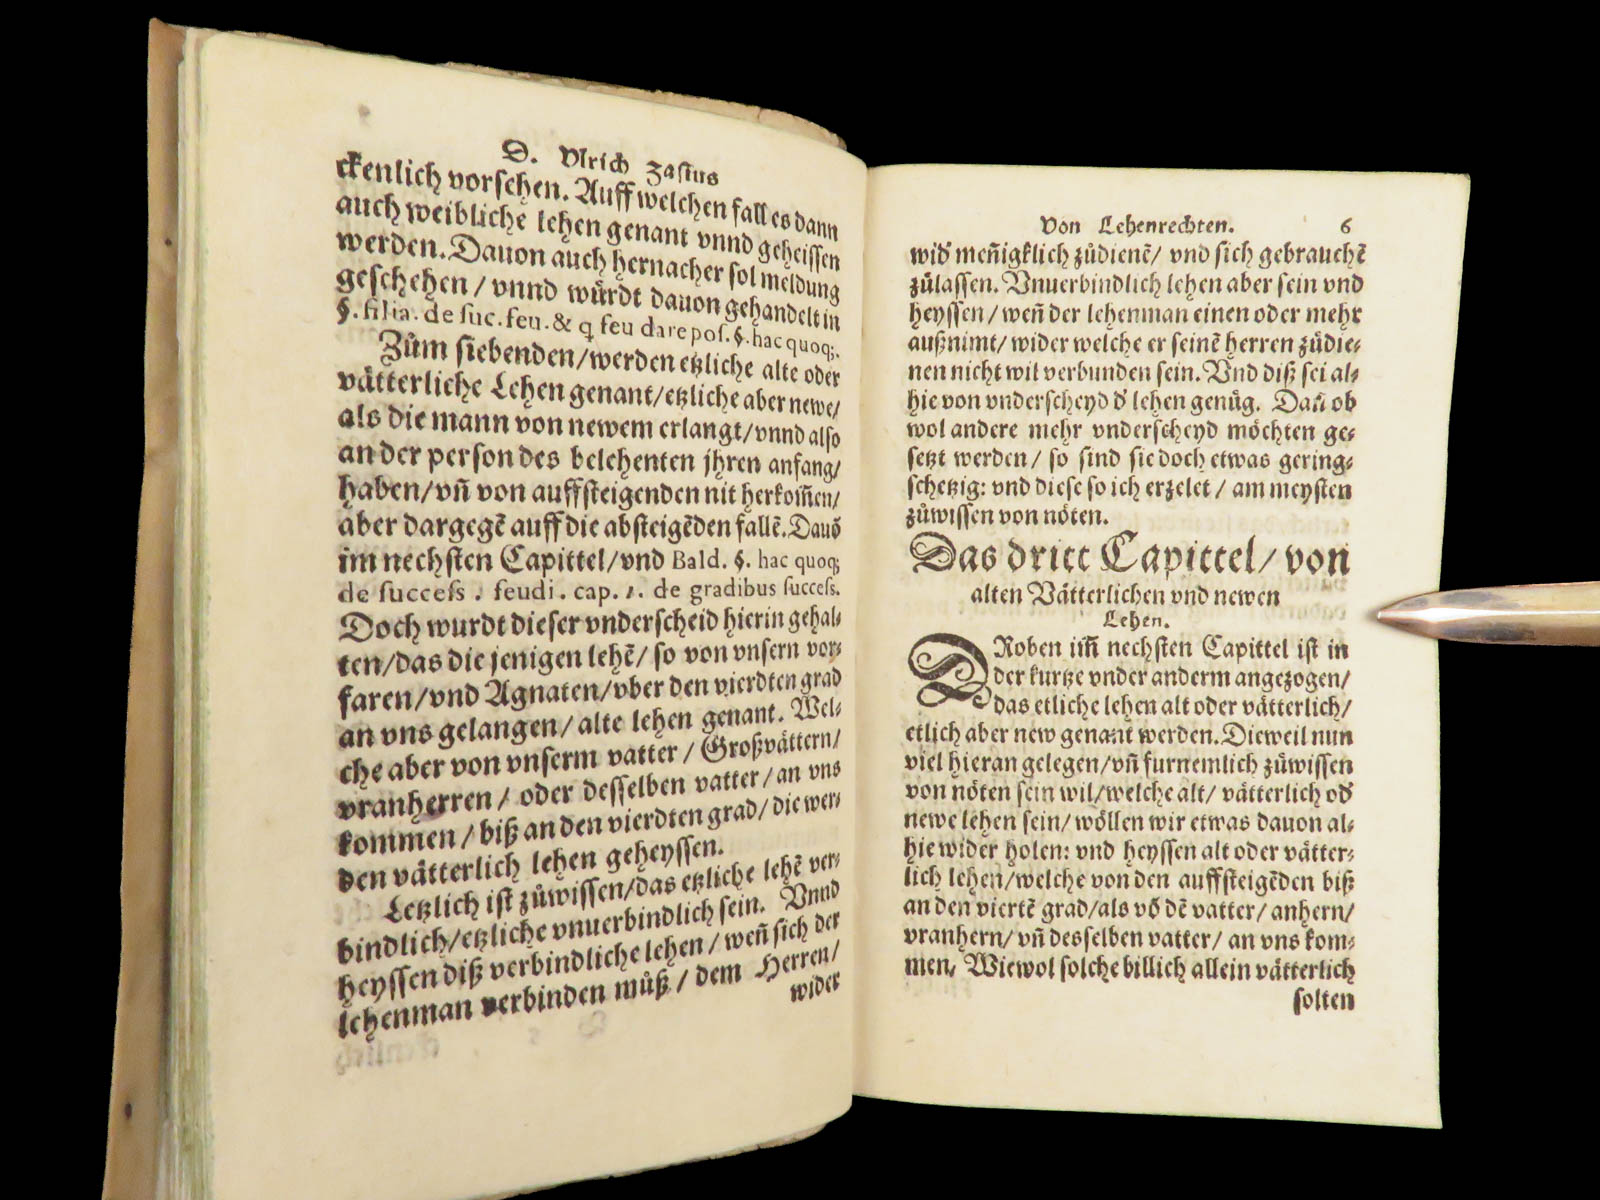 D. Vlrich Zasius
ckenlich vorsehen. Auff welchen fall es dann
auch weibliche lehen genant vnnd geheissen
werden. Dauon auch hernacher sol meldung
geschehen / vnnd würdt dauon gehandelt in
§. filia. de suc. feu. & q̃ feu dare pos. §. hac quoq;.
Zům siebenden/werden etzliche alte oder
vätterliche Lehen genant/etzliche aber newe/
als die mann von newem erlangt/vnnd also
an der person des belehenten jhren anfang/
haben/vñ von auffsteigenden nit herkom̃en/
aber dargegẽ auff die absteigẽden fallẽ. Dauõ
im nechsten Capittel/vnd Bald. §. hac quoq;
de success. feudi. cap. 1. de gradibus success.
Doch wurdt dieser vnderscheid hierin gehal-
ten/das die jenigen lehẽ/ so von vnsern vor-
faren/vnd Agnaten/vber den vierdten grad
an vns gelangen/ alte lehen genant. Wel-
che aber von vnserm vatter / Großvättern/
vranherren / oder desselben vatter/an vns
kommen / biß an den vierdten grad/ die wer-
den vätterlich lehen geheyssen.
Letzlich ist zůwissen/das etzliche lehẽ ver-
bindlich/etzliche vnuerbindlich sein. Vnnd
heyssen diß verbindliche lehen / weñ sich der
lehenman verbinden můß / dem Herren/
wider
Von Lehenrechten. 6
wid̃ meñigklich zůdienẽ/ vnd sich gebrauchẽ
zůlassen. Vnuerbindlich lehen aber sein vnd
heyssen / weñ der lehenman einen oder mehr
außnimt/ wider welche er seinẽ herren zůdie-
nen nicht wil verbunden sein. Vnd diß sei al-
hie von vnderscheyd d̃ lehen genůg. Dañ ob
wol andere mehr vnderscheyd möchten ge-
setzt werden/ so sind sie doch etwas gering-
schetzig: vnd diese so ich erzelet / am meysten
zůwissen von nöten.
Das dritt Capittel/ von
alten Vätterlichen vnd newen
Lehen.
DRoben im̃ nechsten Capittel ist in
der kurtze vnder anderm angezogen/
das etliche lehen alt oder vätterlich/
etlich aber new genant werden. Dieweil nun
viel hieran gelegen/vñ furnemlich zůwissen
von nöten sein wil/welche alt/ vätterlich od̃
newe lehen sein/ wöllen wir etwas dauon al-
hie wider holen: vnd heyssen alt oder vätter-
lich lehen/welche von den auffsteigẽden biß
an den viertẽ grad/als võ dẽ vatter/ anhern/
vranhern/ vñ desselben vatter/ an vns kom-
men/ Wiewol solche billich allein vätterlich
solten